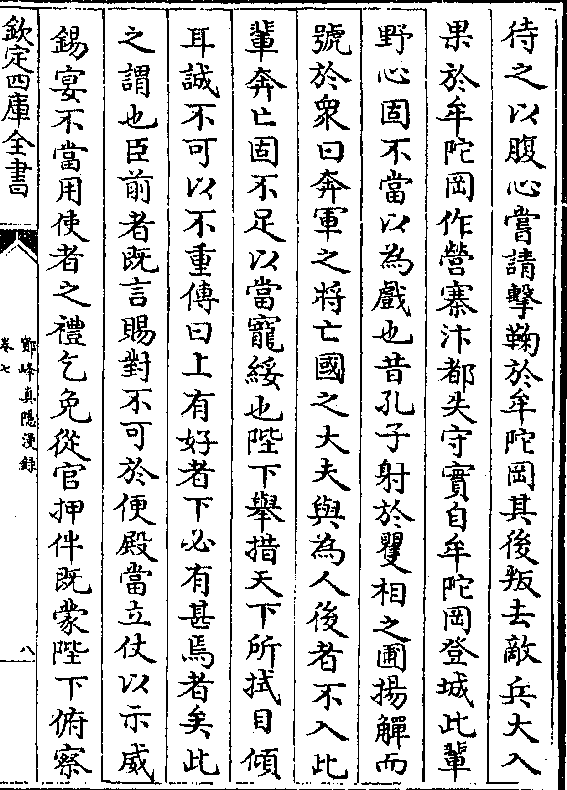 待之以腹心嘗請擊鞠於牟陀岡其後叛去敵兵大入
果於牟陀岡作營寨汴都失守實自牟陀岡登城此輩
野心固不當以為戲也昔孔子射於矍相之圃揚觶而
號於衆曰奔軍之將亡國之大夫與為人後者不入此
輩奔亡固不足以當寵綏也陛下舉措天下所拭目傾
耳誠不可以不重傳曰上有好者下必有甚焉者矣此
之謂也臣前者既言賜對不可於便殿當立仗以示威
錫宴不當用使者之禮乞免從官押伴既蒙陛下俯察
欽定四庫全書
鄮峰真隱漫録
卷七
八